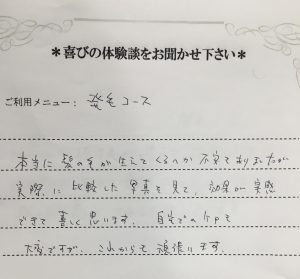 *喜びの体験談をお聞かせ下さい*
ご利用メニュー： 発毛コース
本当に髪の毛が生えてくるのか不安でありましたが
実際に比較した写真を見て、効果が実感
できて喜しく思います。自宅でのケアも
大変ですが、これからも頑張ります。